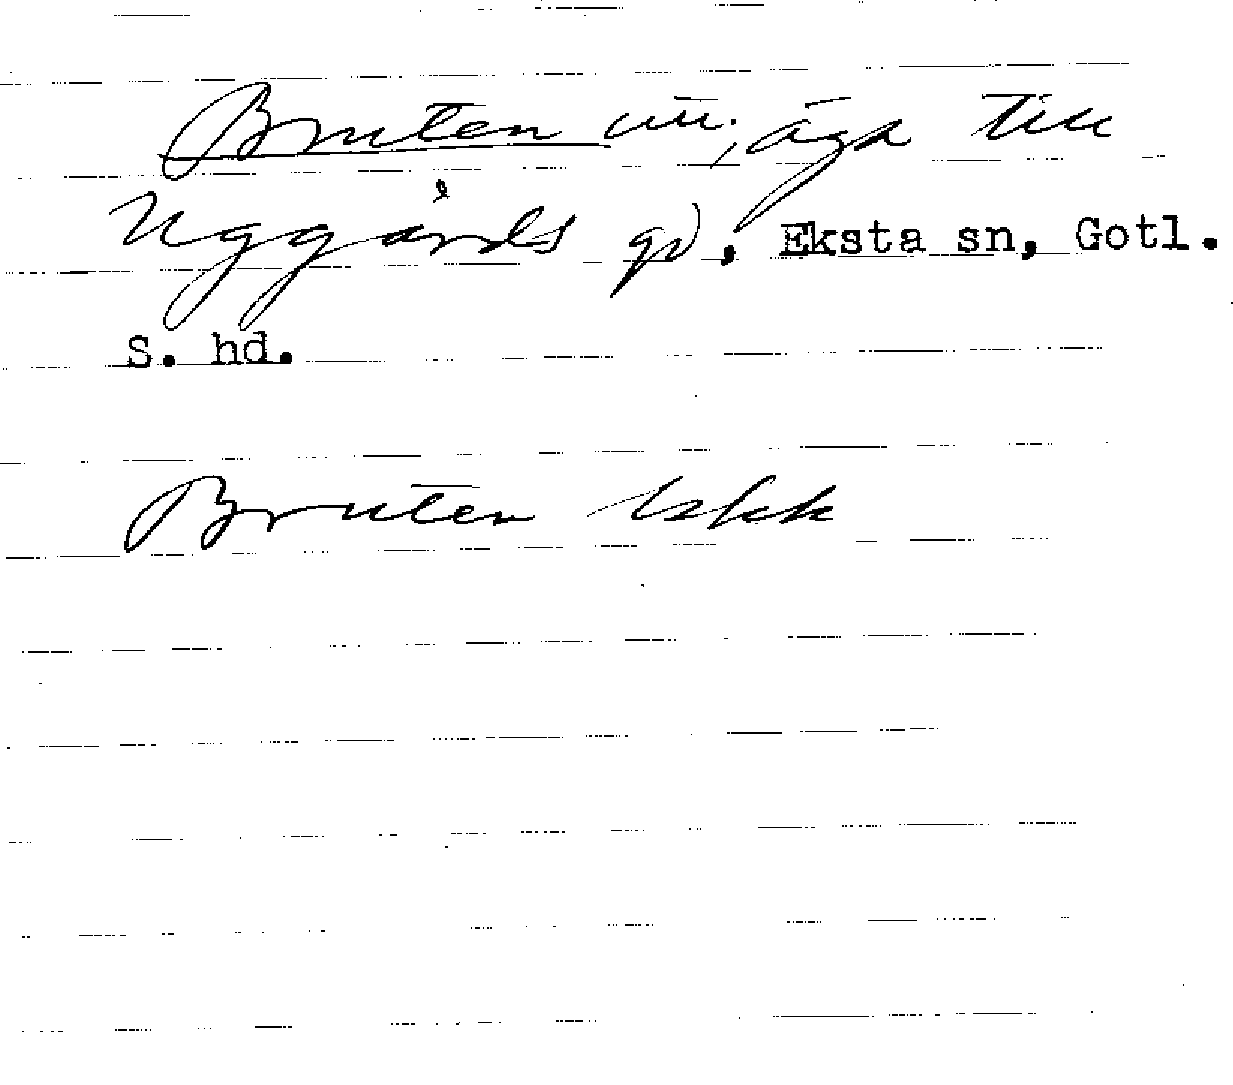 Bruten un., äga till
Uggårds gd, Eksta sn, Gotl.
S. hd.
Bruten